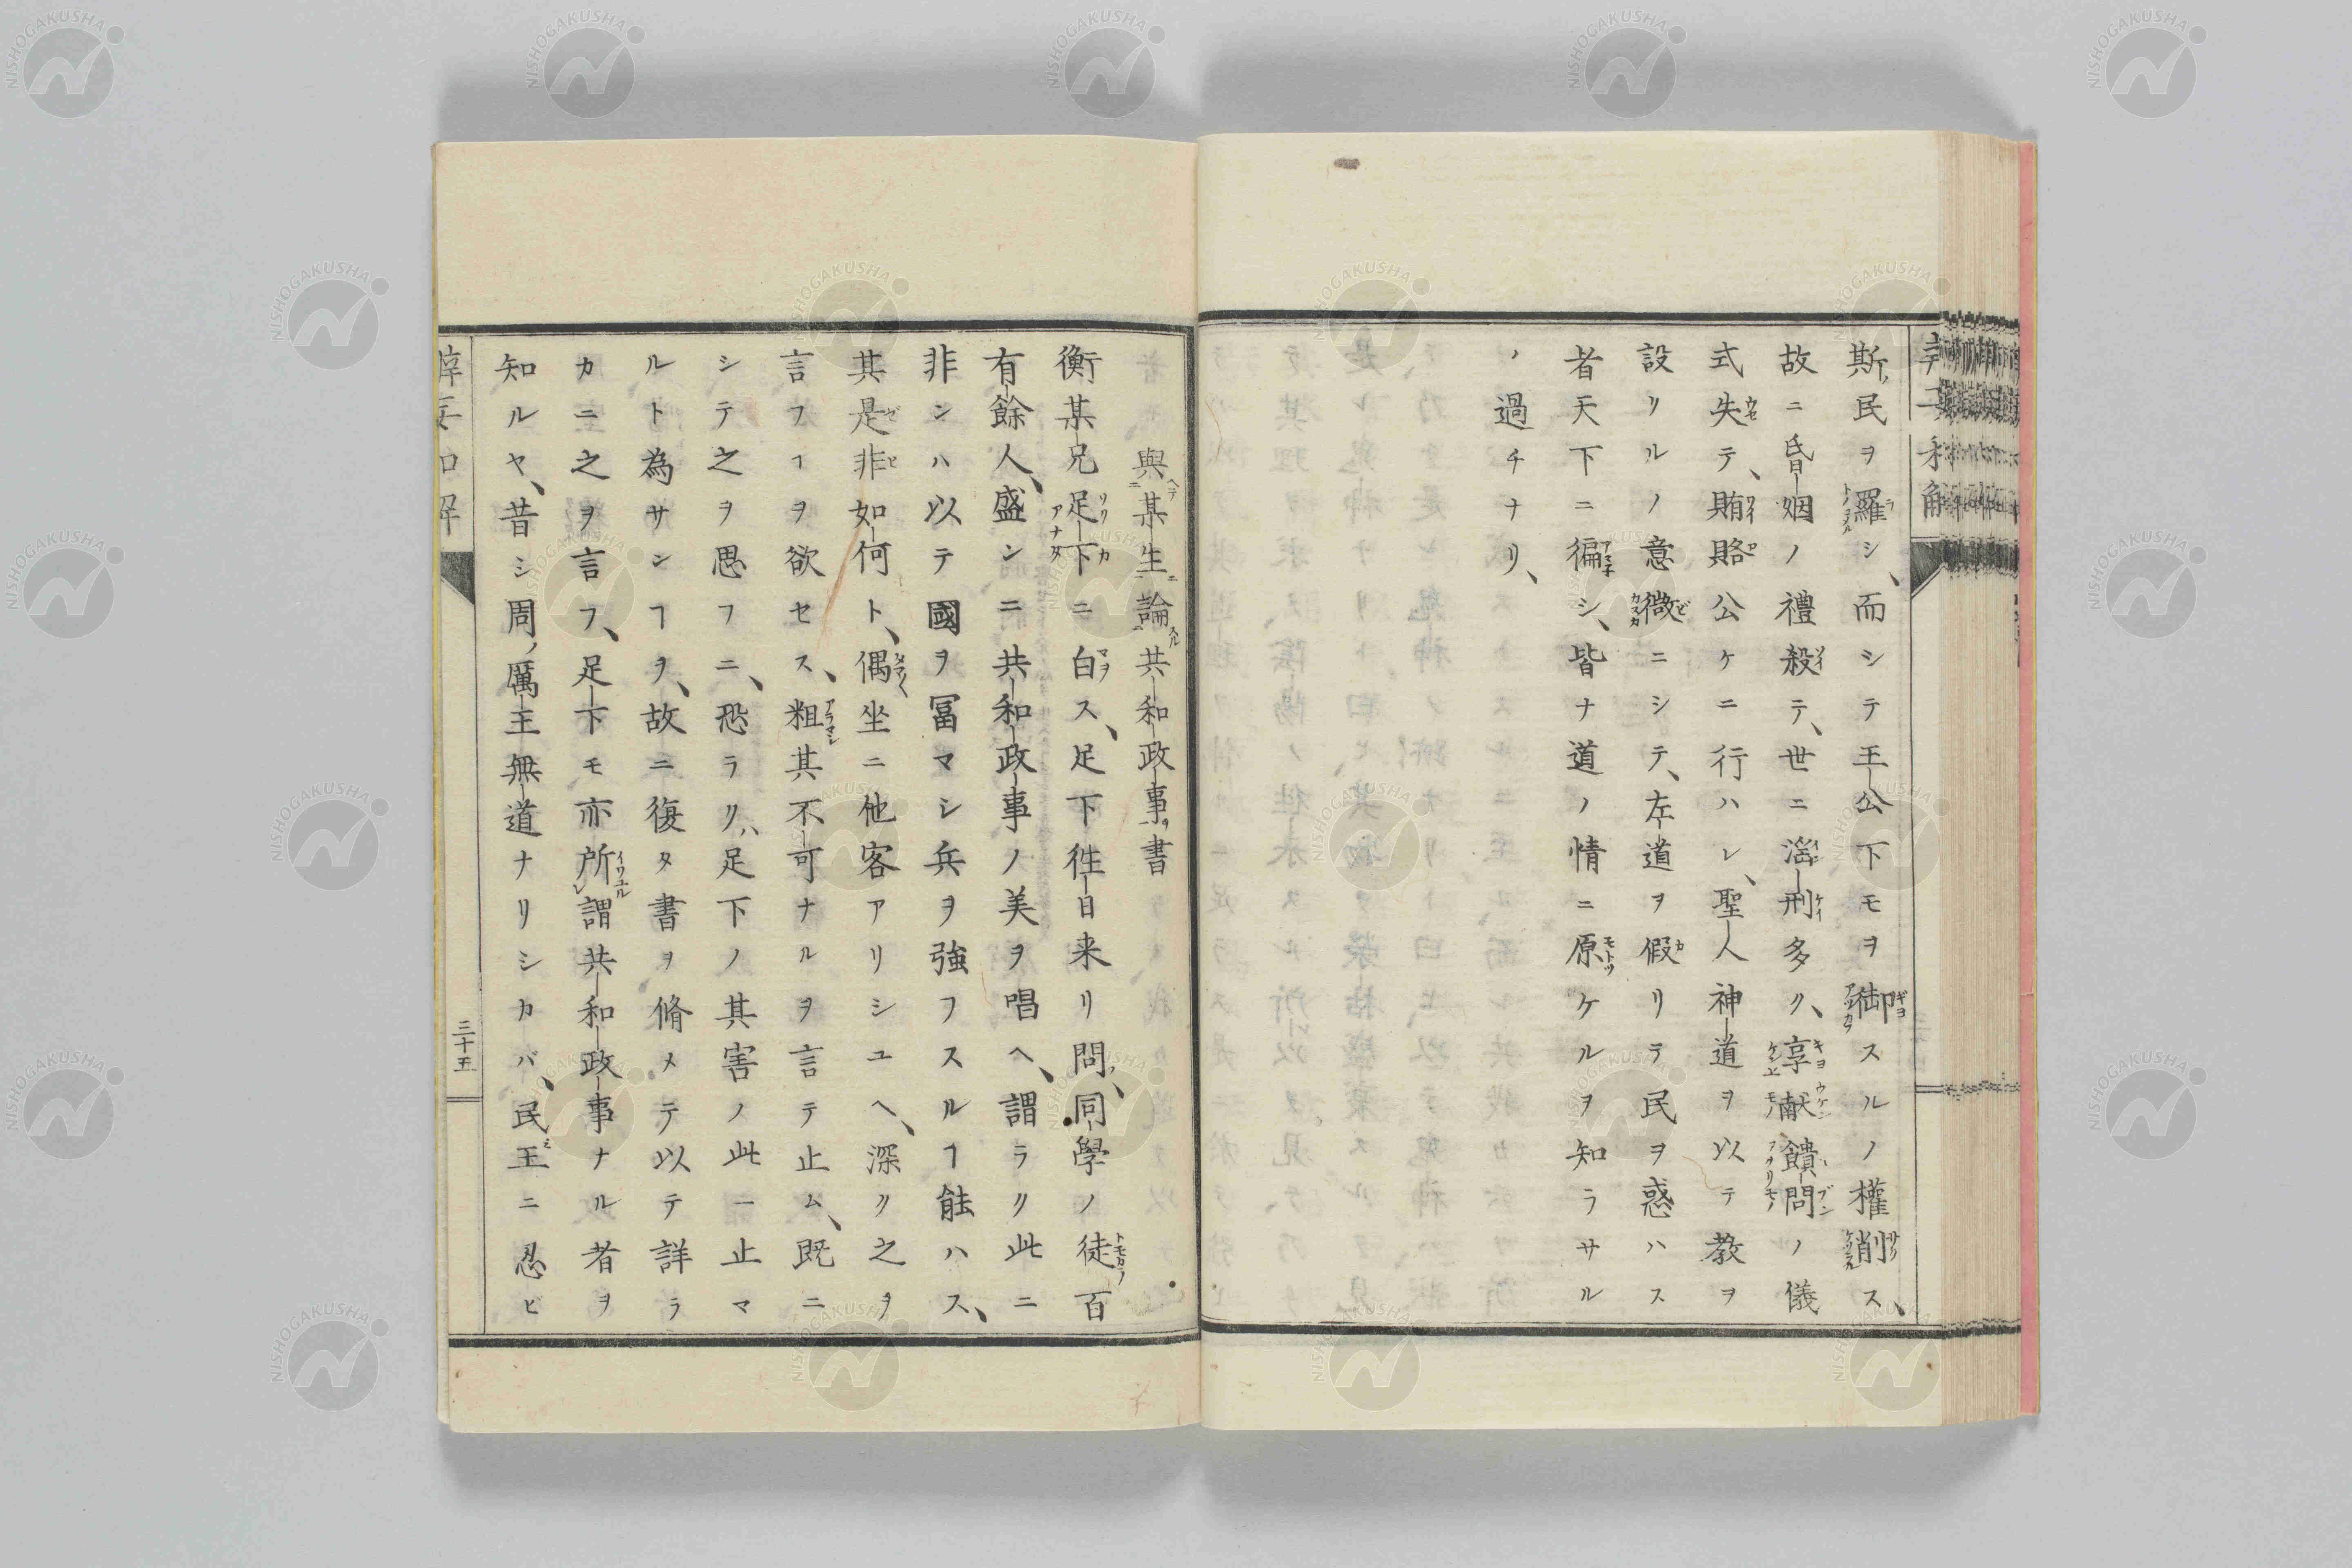 斯ノ民ヲ羅シ、而シテ王公下モヲ御スルノ權削ス、
故ニ昏姻ノ禮殺テ、世ニ淫刑多ク、享献饋問ノ儀
式失テ、賄賂公ケニ行ハレ、聖人神道ヲ以テ教ヲ
設リルノ意微ニシテ、左道ヲ假リテ民ヲ惑ハス
者天下ニ徧シ、皆ナ道ノ情ニ原ケルヲ知ラサル
ノ過チナリ、
與某生論共和政事書
衡某兄足下ニ白ス、足下徃日来リ問フ、同學ノ徒百
有餘人、盛ンニ共和政事ノ美ヲ唱ヘ、謂ラク此ニ
非ンハ以テ國ヲ冨マシ兵ヲ強フスルヿ能ハス、
其是非如何ト、偶坐ニ他客アリシユヘ、深ク之ヲ
言フヿヲ欲セス、粗其不可ナルヲ言テ止ム、既ニ
シテ之ヲ思フニ、恐ラクハ足下ノ其害ノ此ニ止マ
ルト為サンヿヲ、故ニ復タ書ヲ脩メテ以テ詳ラ
カニ之ヲ言フ、足下モ亦所謂共和政事ナル者ヲ
知ルヤ、昔シ周ノ厲王無道ナリシカバ、民王ニ忍ビ
三十五
NISHOGAKUSHA